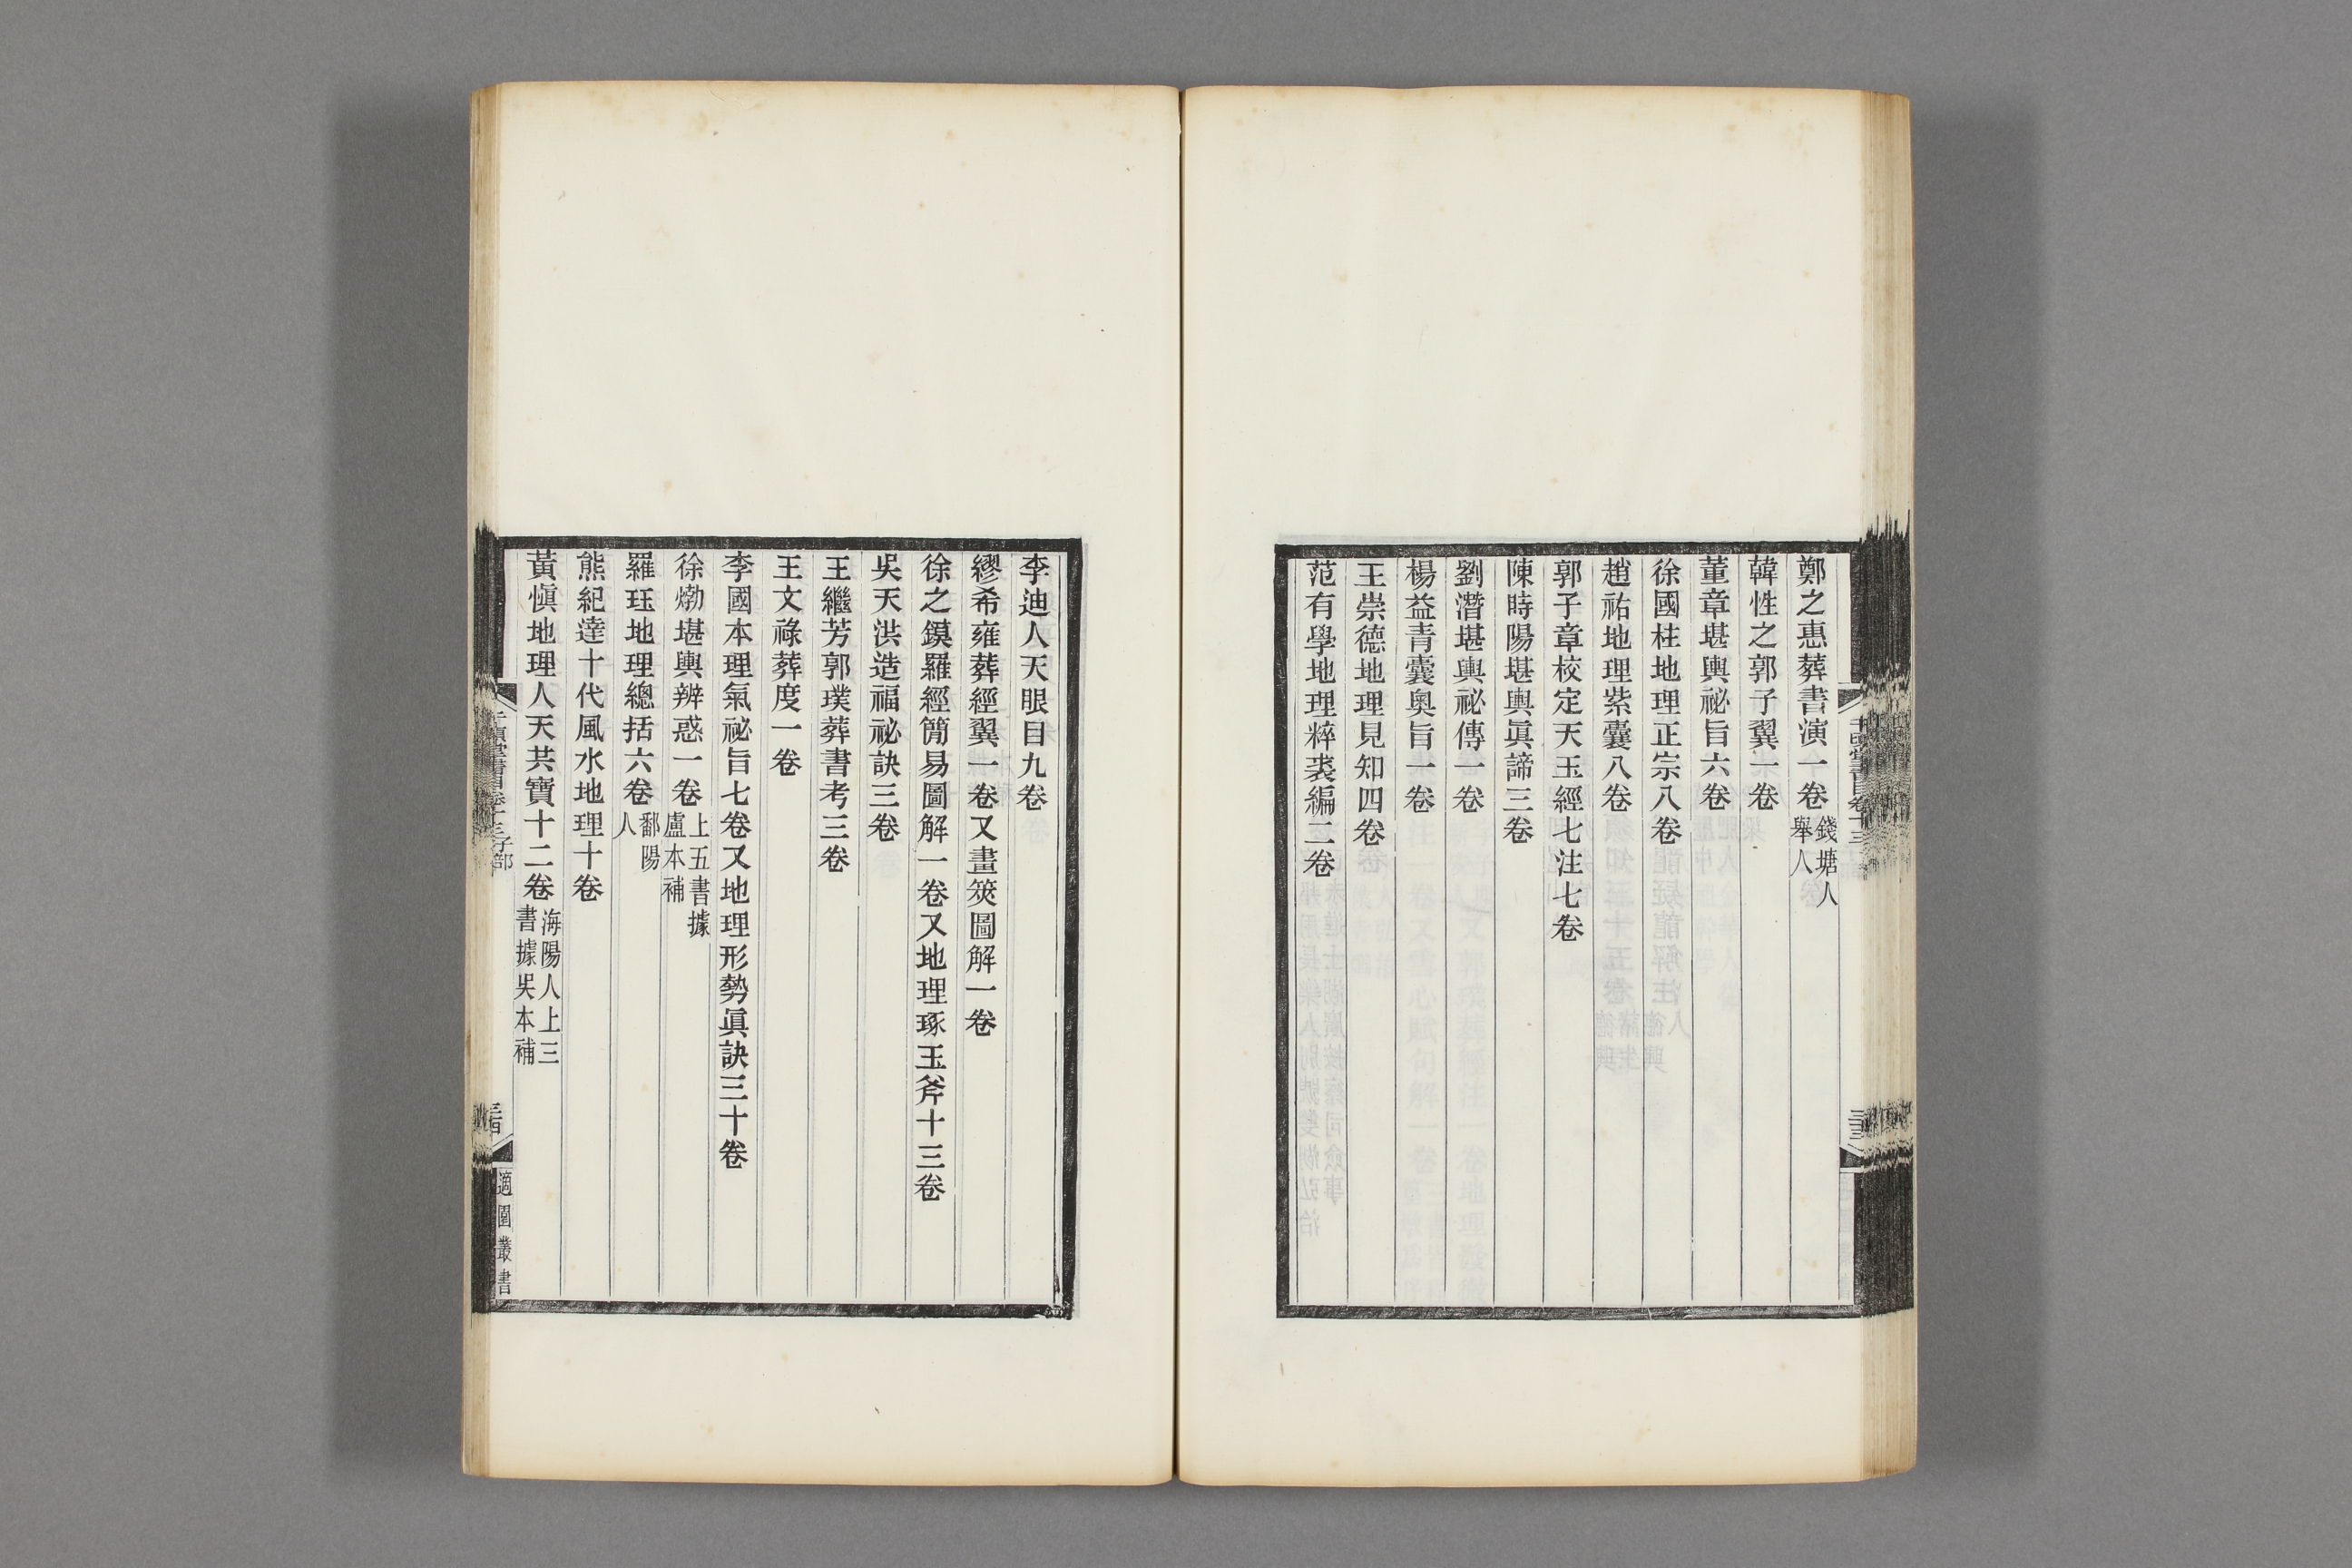 鄭之惠葬書演一卷錢塘人舉人
韓性之郭子翼一卷
董章堪輿祕旨六卷
徐國柱地理正宗八卷
趙祐地理紫囊八卷
郭子章校定天玉經七注七卷
陳時陽堪輿眞諦三卷
劉潛堪輿祕傳一卷
楊益青囊奧旨一卷
王崇德地理見知四卷
范有學地理粹裘編二卷
李迪人天眼目九卷
繆希雍葬經翼一卷又畫筴圖解一卷
徐之鏌羅經簡易圖解一卷又地理琢玉斧十三卷
吳天洪造福祕訣三卷
王繼芳郭璞葬書考三卷
王文祿葬度一卷
李國本理氣祕旨七卷又地理形勢眞訣三十卷
徐㶿堪輿辨惑一卷上五書據盧本補
羅珏地理總括六卷鄱陽人
熊紀達十代風水地理十卷
黃愼地理人天共寶十二卷海陽人上三書據吳本補
適園叢書